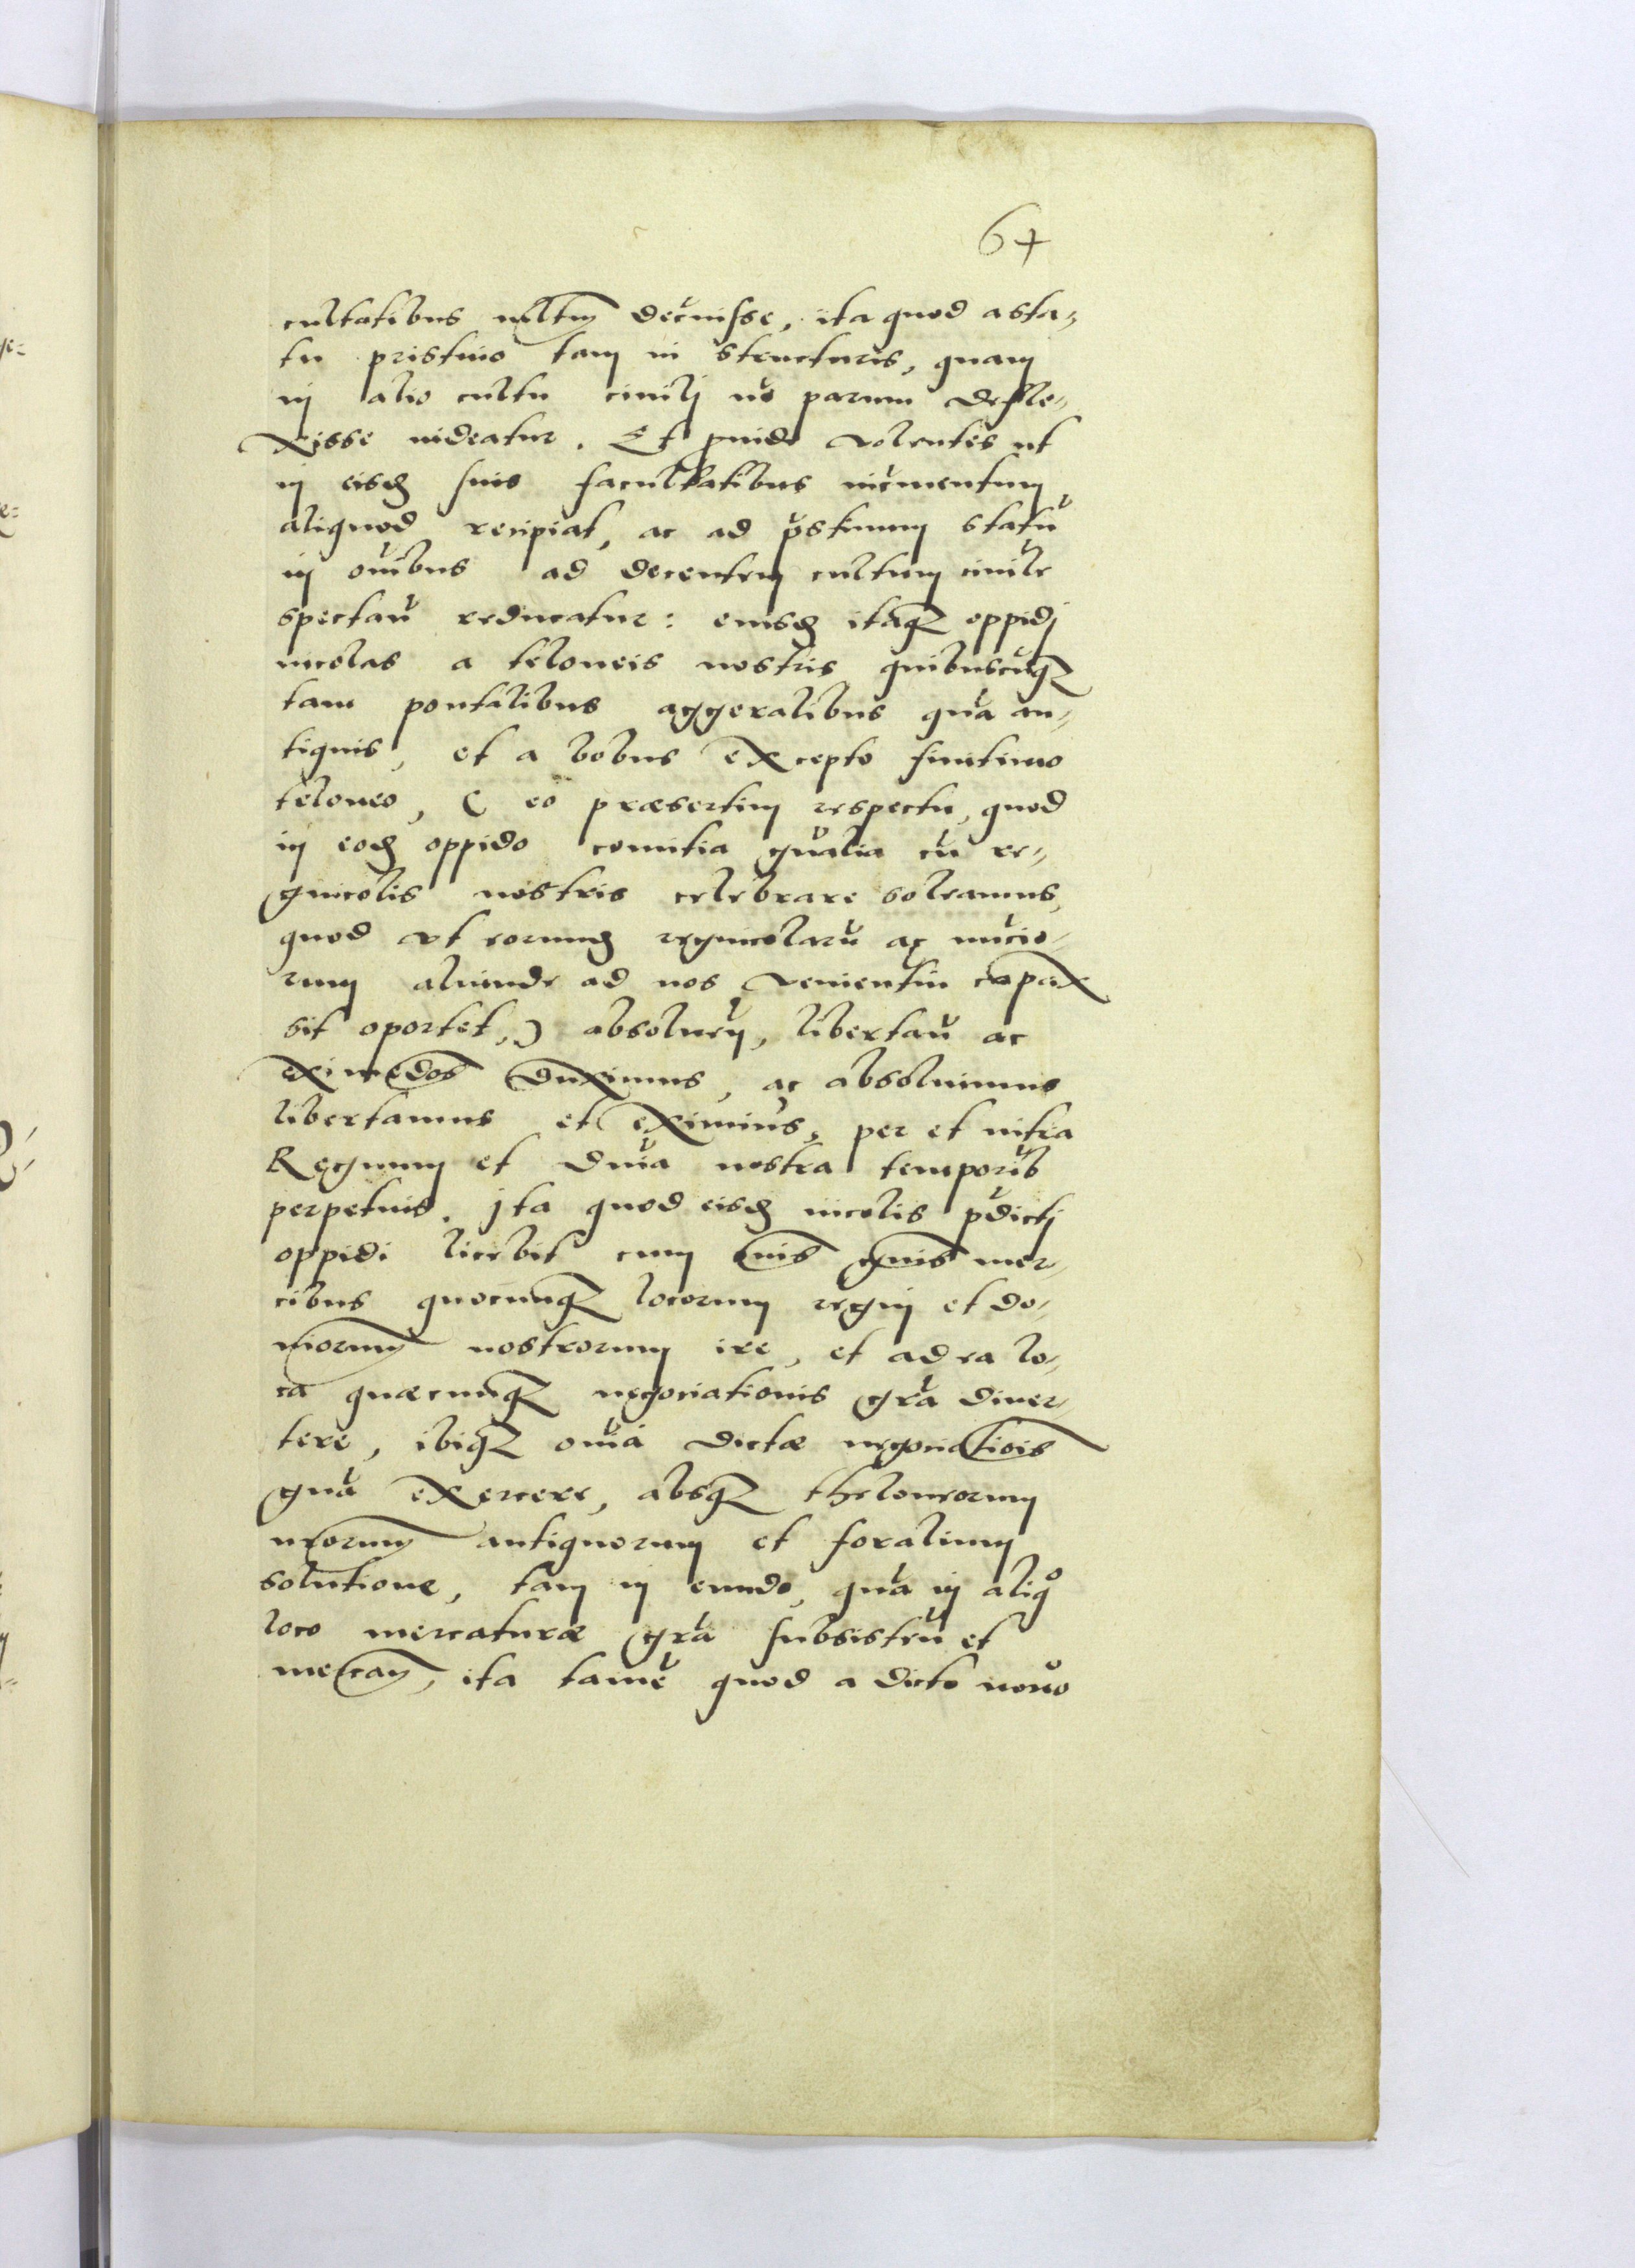 64
cultatibus multum decuisse, ita quod a sta-
tu pristino tam in structuris, quam
in alio cultu civili nō parum defle-
xisse uideatur. Et proinde volentes ut
in eisdē suis facultatibus incrementum
aliquod recipiat, ac ad pristinum statū
in omībus ad decentem cultum civilē
spectan̄ reducatur: eiusdē itaq; oppidj
incolas a teloneis nostris quibuscūq;
tam pontalibus aggeralibus quā an-
tiquis, et a bobus excepto finitimo
teloneo, ( eo præsertim respectu, quod
in eodē oppido comitia gn̄alia cū re-
gnicolis nostris celebrare soleamus,
quod vt eorundē regnicolarū ac nūcio-
rum aliunde ad nos venientiū capax
sit oportet,) absoluen̄, libertan̄ ac
eximēdos duximus, ac absoluimus
libertamus et eximim̄us, per et intra
Regnum et dn̄ia nostra temporib̄
perpetuis. Jta quod eisdē incolis p̄dictj
oppidi licebit cum om̄is gn̄is mer-
cibus quocunq; locorum regni et do-
miniorum nostrorum ire, et ad ea lo-
ca quæcunq; negociationis gr̄a diuer-
tere, ibiq; om̄ia dictæ negociatiōis
gn̄a exercere, absq; theloneorum
nr̄orum antiquorum et foralium
solutione, tam in eundo, quā in aliqo
loco mercaturæ gr̄a subsisten̄ et
mercan̄, ita tamē quod a dicto nouo